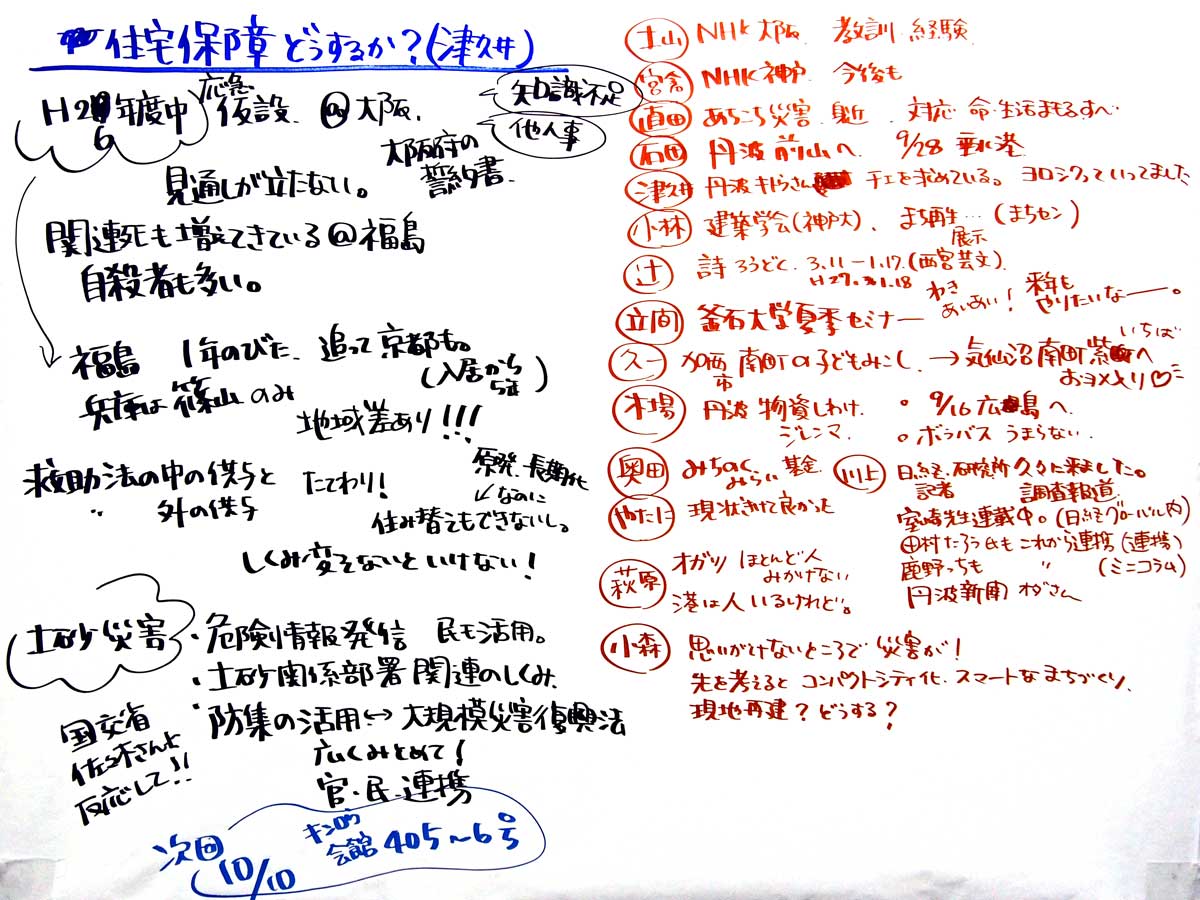 住宅保障どうするか?(津久井)
H26年度中 応急仮設 @大阪
知識不足
他人事
大阪府の
誓約書
見通しが立たない。
関連死も増えてきている@福島
自殺者も多い。
福島 1年のびた、追って京都も。
(入居から
兵庫は篠山のみ
地域差あり!!!
救助法の中の供与と たてわり!
〃 外の供与
原発、長期化
なのに
住み替えもできないし。
しくみ変えないといけない!
土砂災害
・危険情報発信 民も活用。
・土砂関係部署関連のしくみ
・防集の活用↔大規模災害復興法
広くみとめて!
官・民・連携
国交省
佐々木さんも
反応して!!
次回
10/10
キンロウ
会館 405~6号
土山 NHK大阪 教訓 経験
宮舎 NHK神戸 今後も
直田 あちこち災害 身近、対応 命・生活まもるすべ
石西 丹波 前山へ 9/28 垂水港
津久井 丹波 さん チエを求めている。ヨロシクっていってました
小林 建築学会(神戸大)、まち再生…(まちセン)
辻 詩ろうどく 3.11-1.17 展示(西宮芸文)
立間 釜石大学夏季セミナー わきあいあい! 来年もやりたいなー。
久一 加西市 南町の子どもみこし → 気仙沼 南町紫いちばへ
おヨメ入り♡
木場 丹波 物資しわけ
ジレンマ
・9/16 広島へ
・ボラバス うまらない
奥田 みちのく
みらい 基金
川上 日経・研究所 久々に来ました。
記者 調査報道
室崎先生連載中。(日経グローバル内)
田村たろう氏も これから連携(連携)
鹿野っちも 〃 (ミニコラム)
丹波新聞 さん
やたに 現状きけて良かった
萩原 オガツ ほとんど人
みかけない
港は人いるけれど。
小森 思いがけないところで災害が!
先を考えると コンパクトシティ化、スマートなまちづくり、
現地再建?どうする?